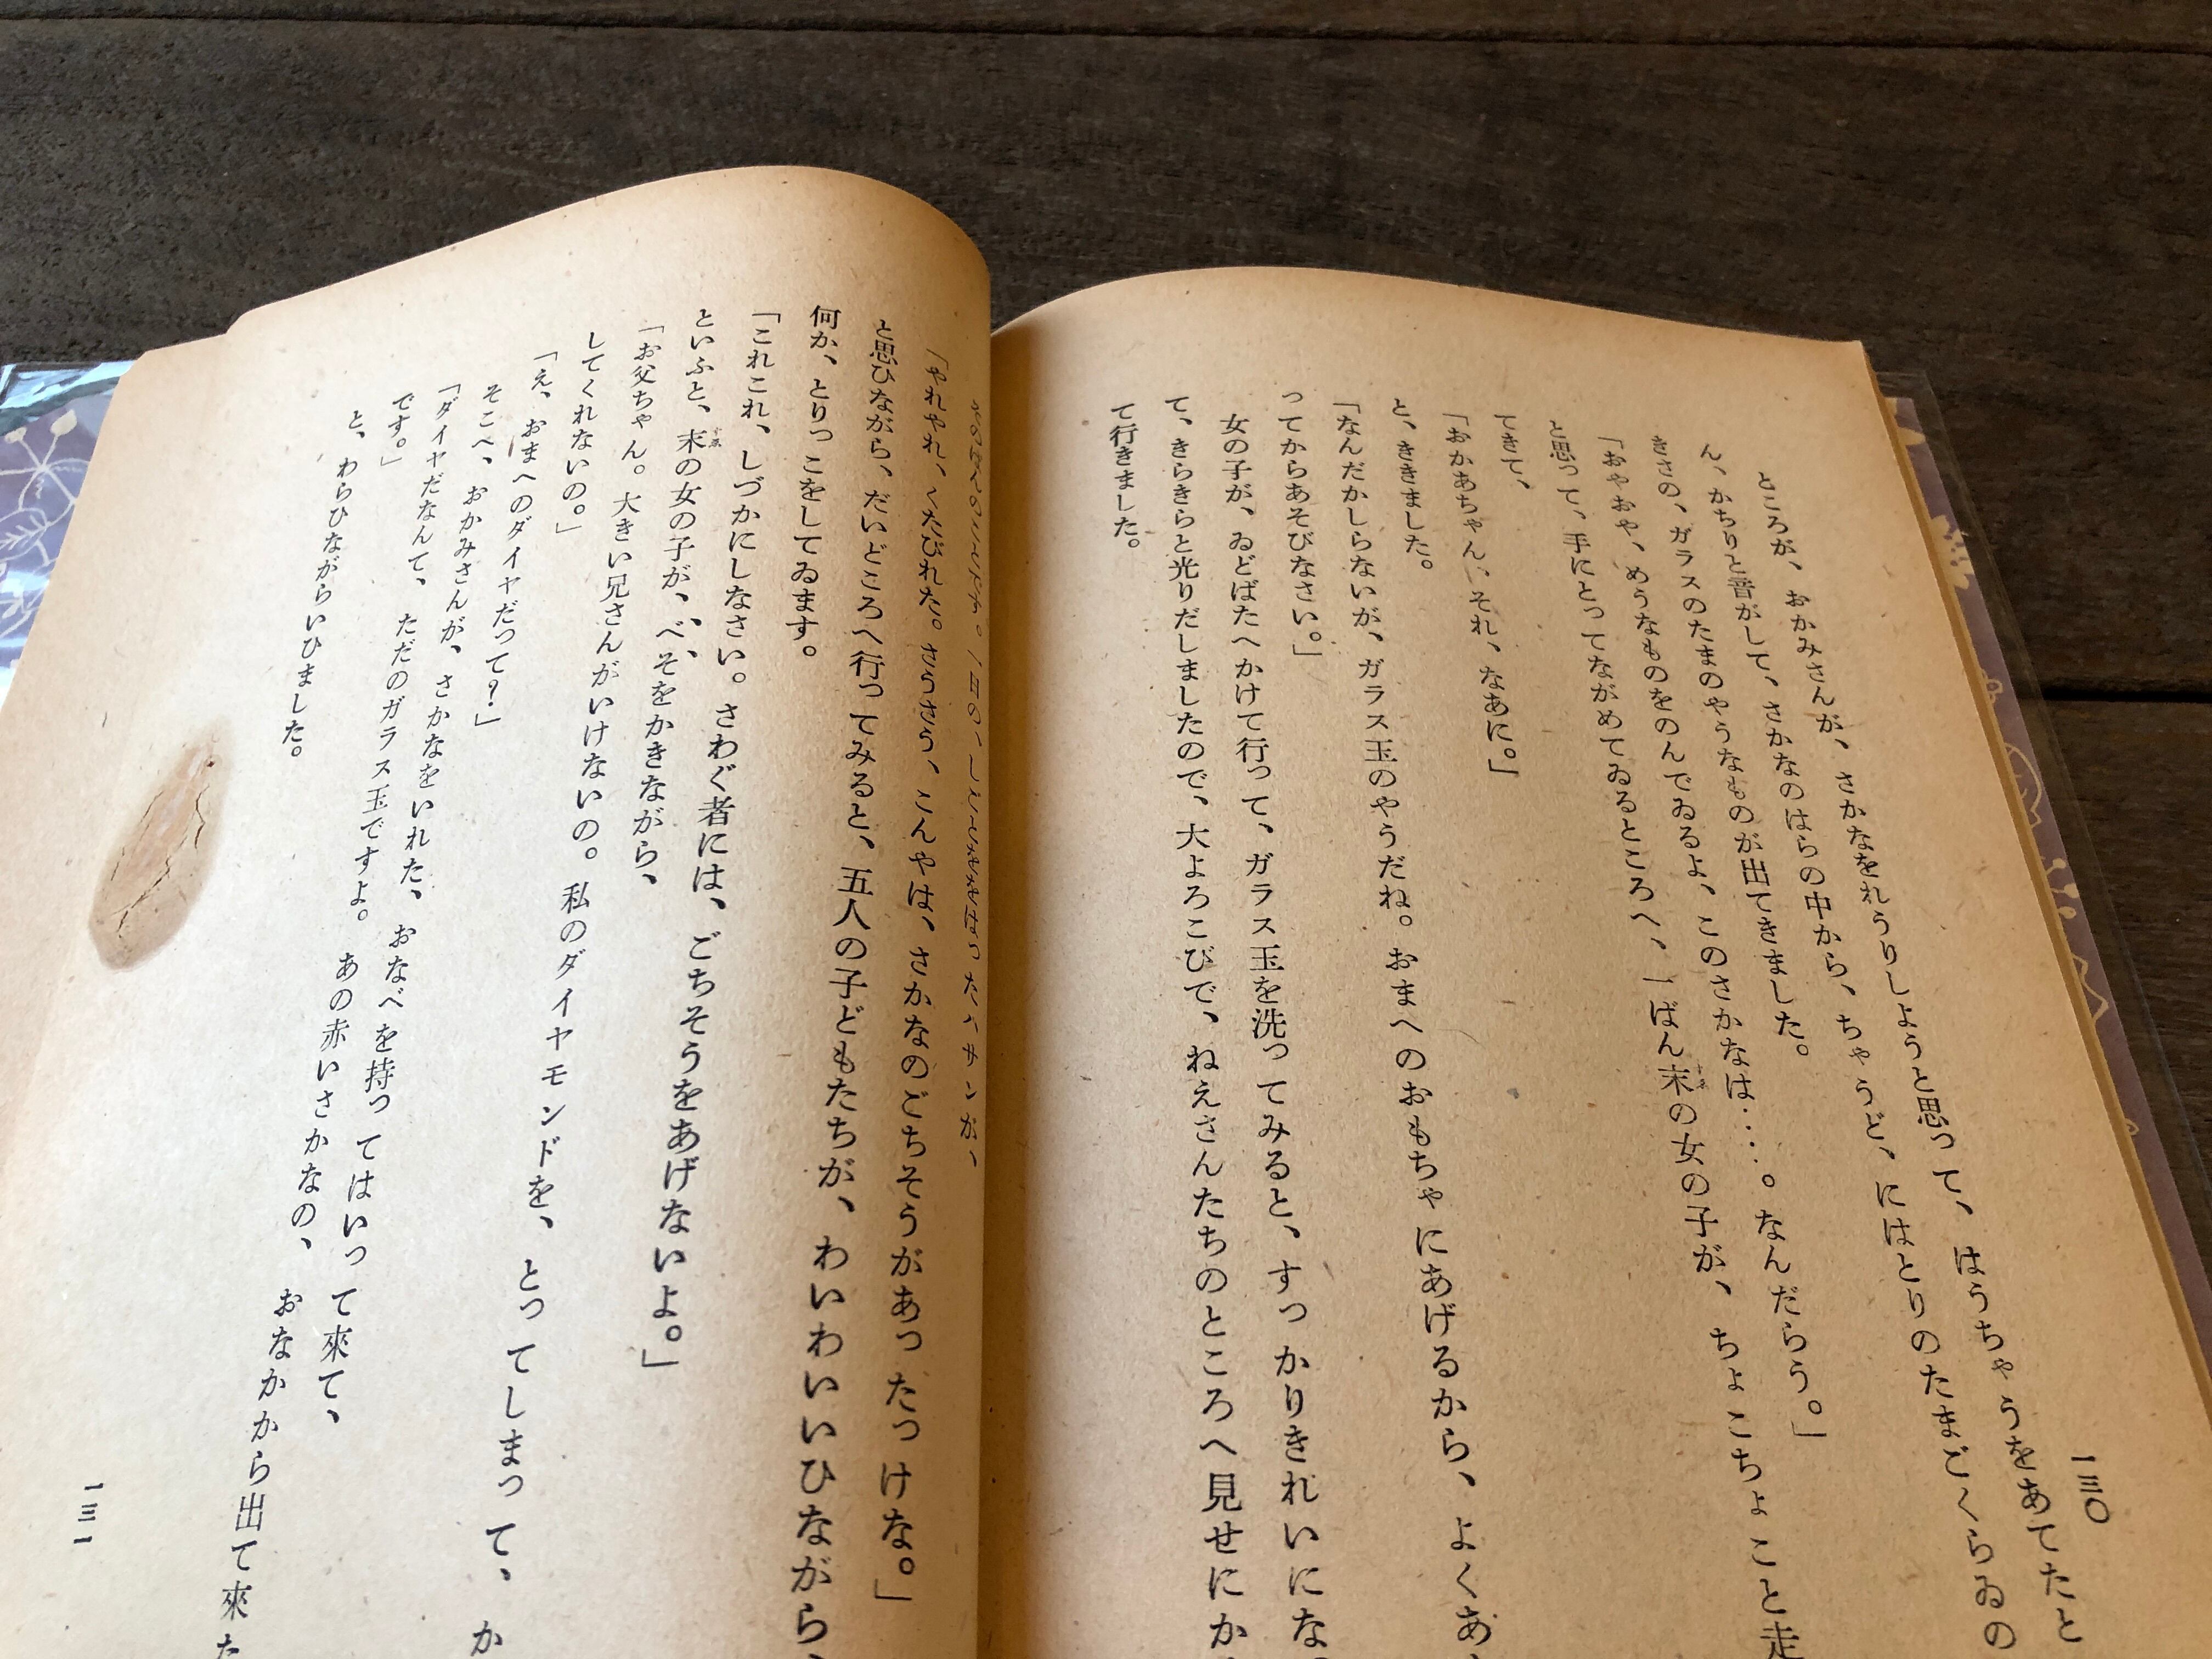 ところが、おかみさんが、さかなをれうりしようと思って、はうちゃうをあてたと
ん、かちりと音がして、さかなのはらの中から、ちゃうど、にはとりのたまごくらゐの
きさの、ガラスのたまのやうなものが出てきました。
「おやおや、めうなものをのんでゐるよ、このさかなは‥‥。なんだらう。」
と思って、手にとってながめてゐるところへ、一ばん末の女の子が、ちょこちょこと走
てきて、
「おかあちゃん、それ、なあに。」
と、ききました。
「なんだかしらないが、ガラス玉のやうだね。おまへのおもちゃにあげるから、よくあ
ってからあそびなさい。」
女の子が、ゐどばたへかけて行って、ガラス玉を洗ってみると、すっかりきれいにな
て、きらきらと光りだしましたので、大よろこびで、ねえさんたちのところへ見せにか
て行きました。
一三〇
「やれやれ、くたびれた。さうさう、こんやは、さかなのごちそうがあったっけな。」
と思ひながら、だいどころへ行ってみると、五人の子どもたちが、わいわいいひながら、
何か、とりっこをしてゐます。
「これこれ、しづかにしなさい。さわぐ者には、ごちそうをあげないよ。」
といふと、末の女の子が、べそをかきながら、
「お父ちゃん。大きい兄さんがいけないの。私のダイヤモンドを、とってしまって、か
してくれないの。」
「え、おまへのダイヤだって?」
そこへ、おかみさんが、さかなをいれた、おなべを持ってはいって來て、
「ダイヤだなんて、ただのガラス玉ですよ。あの赤いさかなの、おなかから出て來た
です。」
と、わらひながらいひました。
一三一